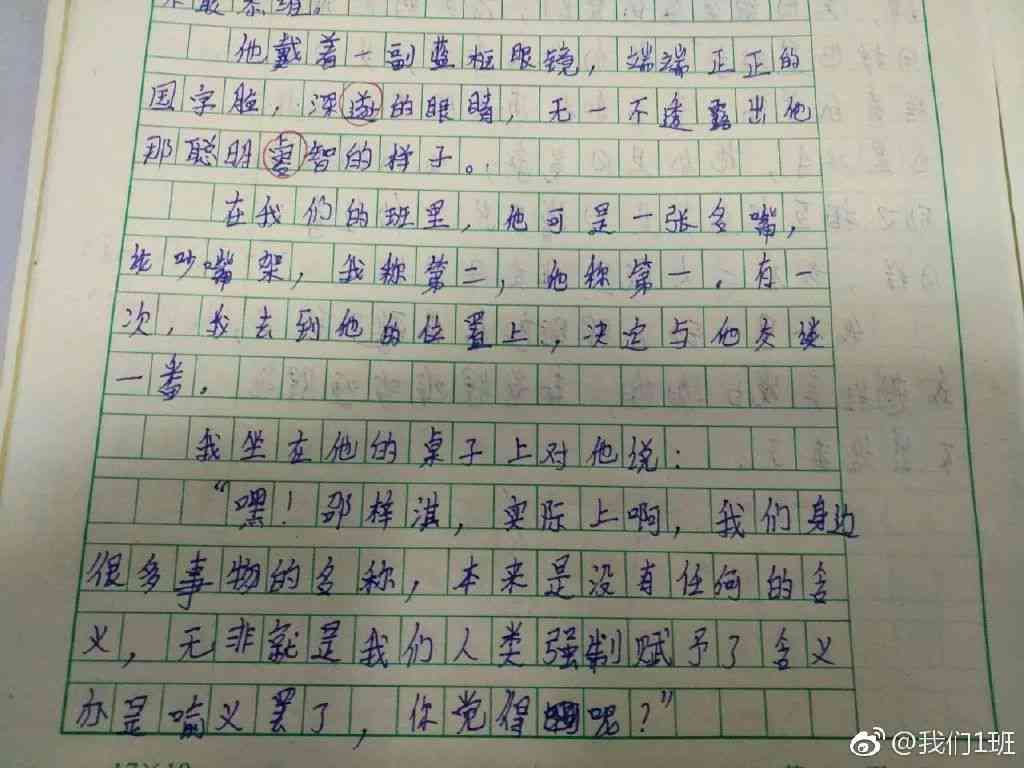 他戴着一副蓝框眼镜，端端正正的
国字脸，深邃的眼睛，无一不透露出他
那聪明睿智的样子。
在我们的班里，他可是一张多嘴，
论吵嘴架，我称第二，他称第一。有一
次，我去到他的位置上，决定与他交谈
一番。
我坐在他的桌子上对他说：
“嘿！邵梓淇，实际上啊，我们身边
很多事物的名称，本来是没有任何的含
义，无非就是我们人类强制赋予了含义
亦是喻义罢了，你觉得呢？”
@我们1班